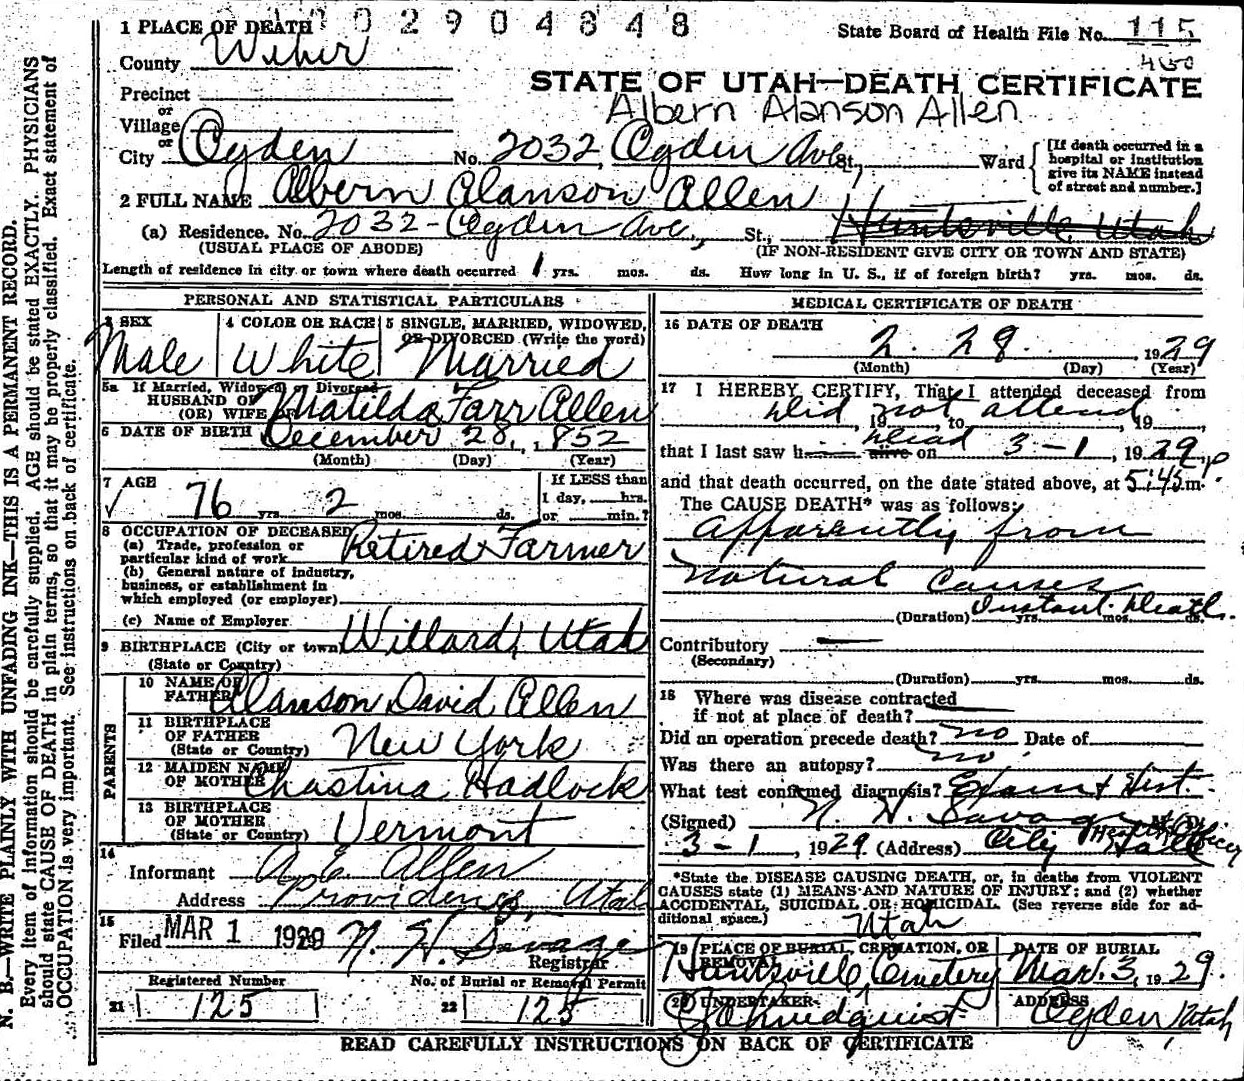 1 PLACE OF DEATH 0 0 2 9 0 4 6 4 8
State Board of Health File No. 115
400
County Weber
STATE OF UTAH—DEATH CERTIFICATE
Precinct
or
Albern Alanson Allen
Village
or
City Ogden No. 2032, Ogden Ave St., Ward
[If death occurred in a
hospital or institution
give its NAME instead
of street and number.]
2 FULL NAME Albern Alanson Allen
(a) Residence. No. 2032 - Ogden Ave., St., Huntsville, Utah
(USUAL PLACE OF ABODE) (IF NON-RESIDENT GIVE CITY OR TOWN AND STATE)
Length of residence in city or town where death occurred 1 yrs. mos. ds. How long in U. S., if of foreign birth? yrs. mos. ds.
PERSONAL AND STATISTICAL PARTICULARS
3 SEX
Male
4 COLOR OR RACE
White
5 SINGLE, MARRIED, WIDOWED,
OR DIVORCED (Write the word)
Married
5a If Married, Widowed or Divorced
HUSBAND OF
(OR) WIFE OF Matilda Farr Allen
6 DATE OF BIRTH December 28, 1852
(Month) (Day) (Year)
7 AGE
76 yrs. 2 mos. ds.
If LESS than
1 day, hrs.
or min.?
8 OCCUPATION OF DECEASED
(a) Trade, profession or
particular kind of work Retired Farmer
(b) General nature of industry,
business, or establishment in
which employed (or employer)
(c) Name of Employer
9 BIRTHPLACE (City or town) Willard, Utah
(State or Country)
PARENTS
10 NAME OF
FATHER Alanson David Allen
11 BIRTHPLACE
OF FATHER
(State or Country) New York
12 MAIDEN NAME
OF MOTHER Chastina Hadlock
13 BIRTHPLACE
OF MOTHER
(State or Country) Vermont
14
Informant A. E. Allen
Address Providence, Utah
15
Filed MAR 1 1929 N. H. Savage
Registrar
Registered Number
21 125
No. of Burial or Removal Permit
22 125
MEDICAL CERTIFICATE OF DEATH
16 DATE OF DEATH
2. 28. , 1929
(Month) (Day) (Year)
17 I HEREBY CERTIFY, That I attended deceased from
Did not attend
, 19 , to , 19 ,
that I last saw h alive dead on 3-1 , 1929,
and that death occurred, on the date stated above, at 5:45 p m.
The CAUSE DEATH* was as follows:
Apparently from
natural causes
(Duration) yrs. mos. ds. Instant. Death.
Contributory
(Secondary)
(Duration) yrs. mos. ds.
18 Where was disease contracted
if not at place of death?
Did an operation precede death? no Date of
Was there an autopsy? no
What test confirmed diagnosis? Exam & Hist.
(Signed) N. H. Savage M. D.
Health Officer
3-1 , 1929 (Address) City Hall
*State the DISEASE CAUSING DEATH, or, in deaths from VIOLENT
CAUSES state (1) MEANS AND NATURE OF INJURY; and (2) whether
ACCIDENTAL, SUICIDAL OR HOMICIDAL. (See reverse side for ad-
ditional space.)
Utah
19 PLACE OF BURIAL, CREMATION, OR
REMOVAL
Huntsville, Cemetery
DATE OF BURIAL
Mar. 3, 1929.
20 UNDERTAKER
ADDRESS
Ogden, Utah
READ CAREFULLY INSTRUCTIONS ON BACK OF CERTIFICATE
N. B.—WRITE PLAINLY WITH UNFADING INK—THIS IS A PERMANENT RECORD.
Every item of information should be carefully supplied. AGE should be stated EXACTLY. PHYSICIANS
should state CAUSE OF DEATH in plain terms, so that it may be properly classified. Exact statement of
OCCUPATION is very important. See instructions on back of certificate.